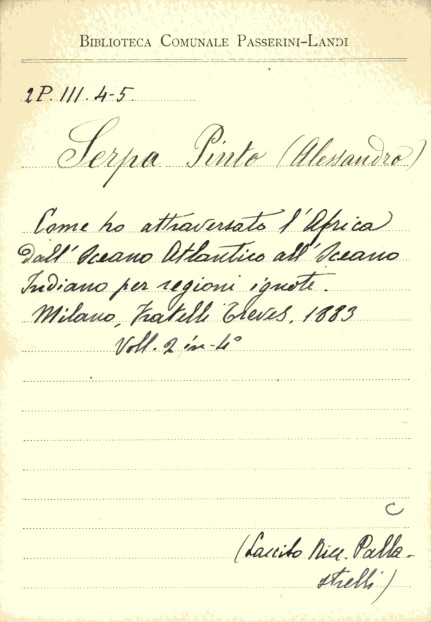 BIBLIOTECA COMUNALE PASSERINI-LANDI
2P. III. 4-5.
Serpa Pinto (Alessandro)
Come ho attraversato l'Africa
dall'Oceano Atlantico all'Oceano
Indiano per regioni ignote.
Milano, Fratelli Treves, 1883
Voll. 2 in-4°
C
(Lascito Ricc. Palla-
strelli)